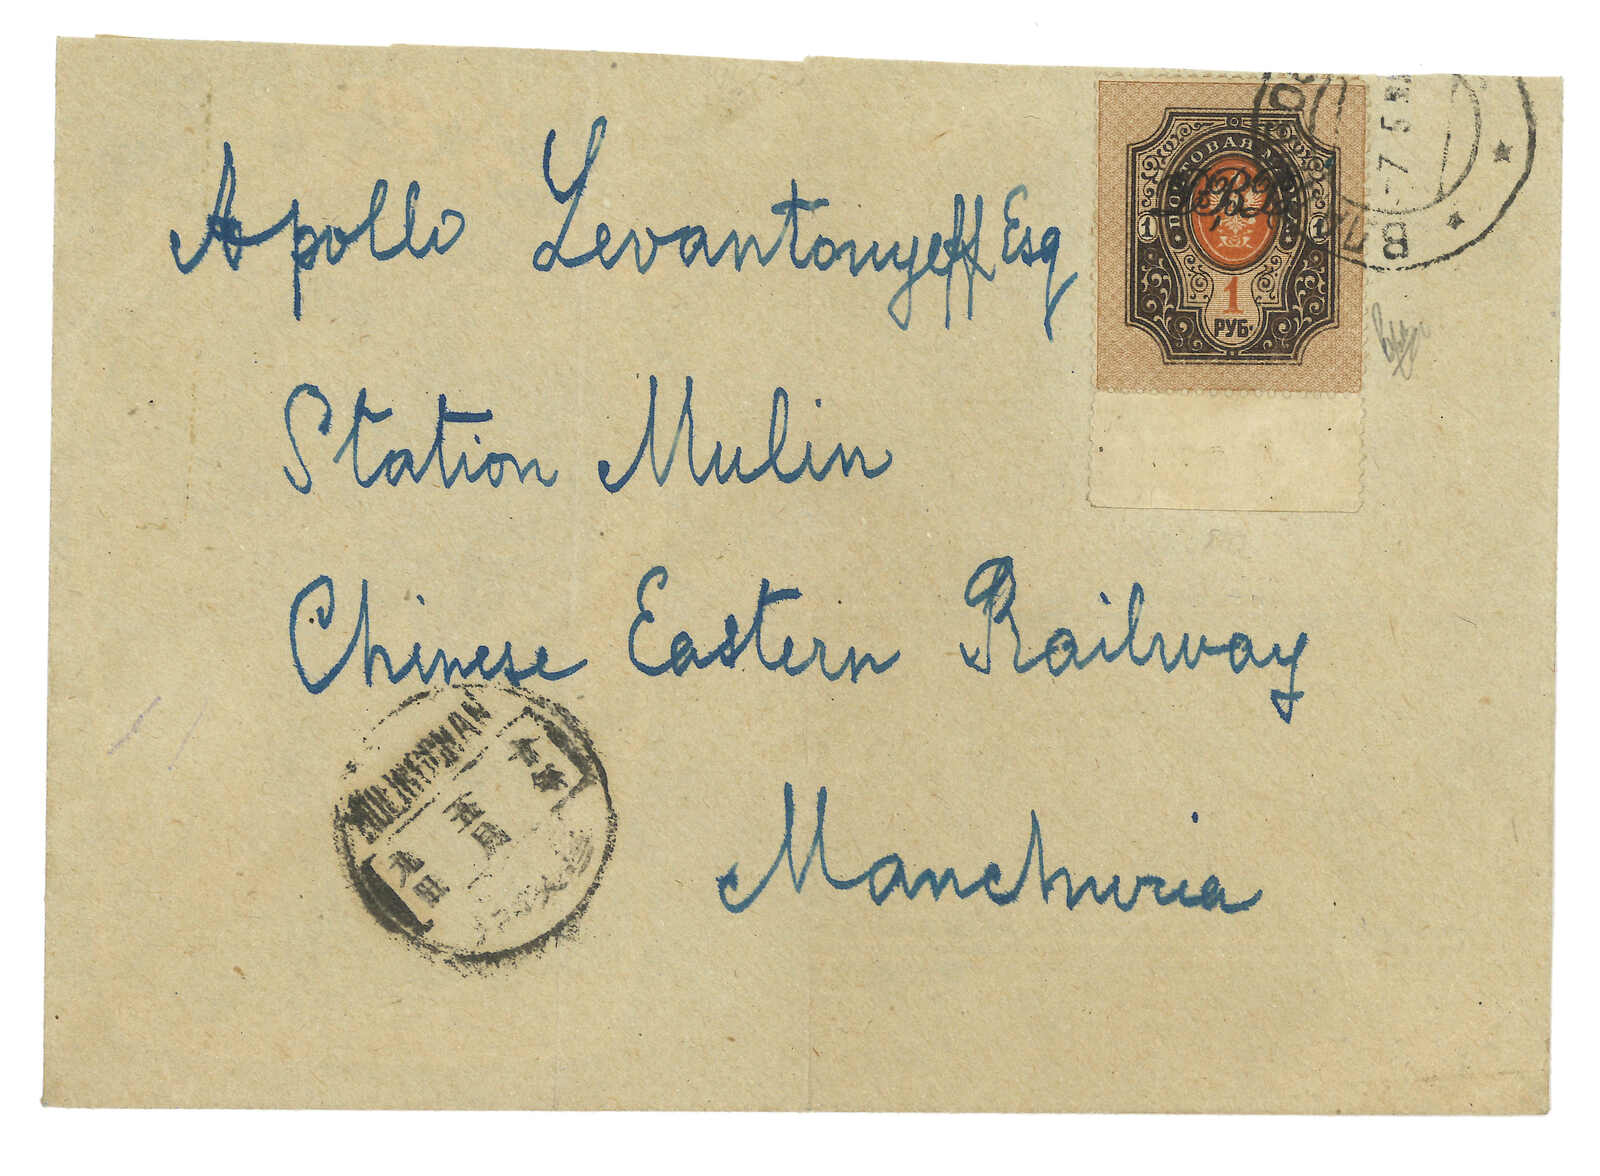 Apollo Levantonyeff Esq
Station Mulin
Chinese Eastern Railway
Manchuria
ПОЧТОВАЯ МАРКА
ДВР
1 1
1
РУБ.
7 5
九日
五月